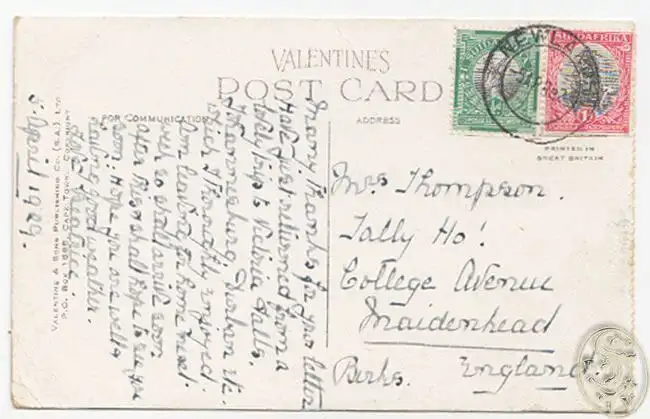 VALENTINES
POST CARD
FOR COMMUNICATION
ADDRESS
PRINTED IN
GREAT BRITAIN
SUIDAFRIKA
1D
NEWCA
VALENTINE & SONS PUBLISHING CO. (S.A.), LTD
P.O. BOX 1685, CAPE TOWN. COPYRIGHT
5 April 1929.
Many Thanks for your letter
Have just returned from a
lovely trip to Victoria Falls.
Johannesburg, Durban etc.
which I thoroughly enjoyed.
Am leaving for home next
week so shall arrive soon
after this & shall hope to see you
soon. Hope you are well &
having good weather.
Love Beatrice.
Mrs. Thompson.
Tally Ho!
College Avenue
Maidenhead
Berks. England.